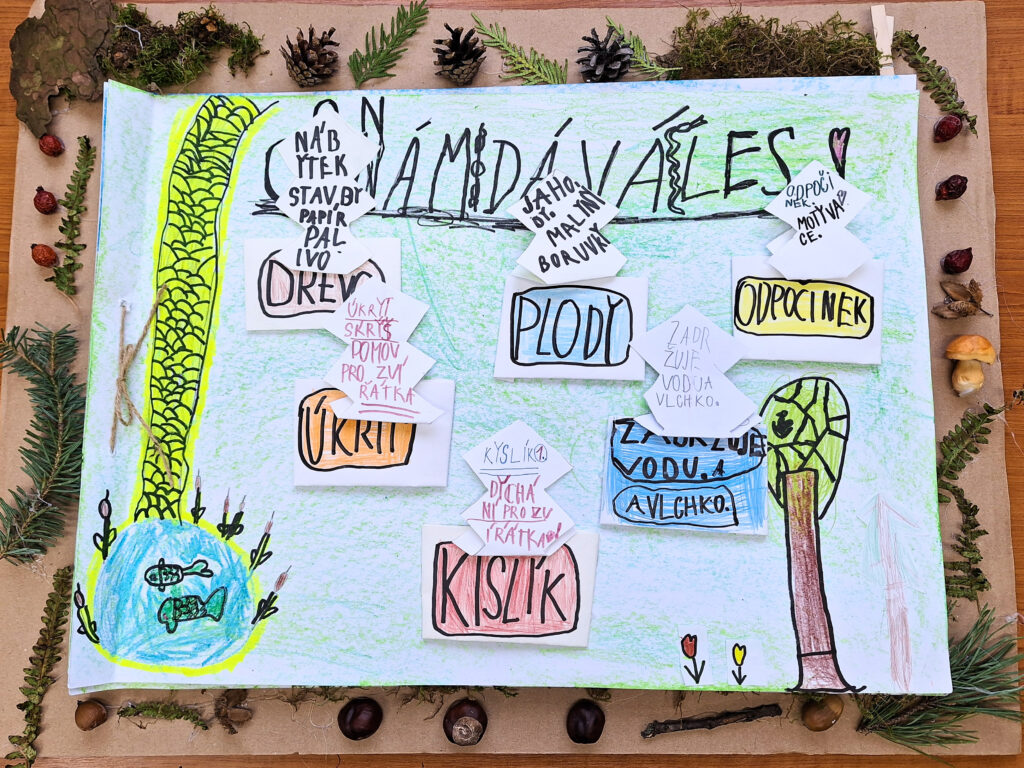 CO NÁM DÁVÁ LES!
NÁB
YTEK
STAVBY
PAPÍR
PAL
IVO
DREVO
JAHO
DY.
MALINI
BORUVI
PLODY
ODPOČI
NEK.
MOTÝVA
CE.
ODPOCINEK
ÚKRYT
SKRÝŠ
DOMOV
PRO ZVÍ
ŘÁTKA
ÚKRIT
ZADR
ŽUJE
VODU A
VLCHKO.
ZADRZUJE
VODU. A
A VLCHKO.
KYSLÍK
DÝCHÁ
NI PRO ZV
ÍŘÁTKA
KISLÍK